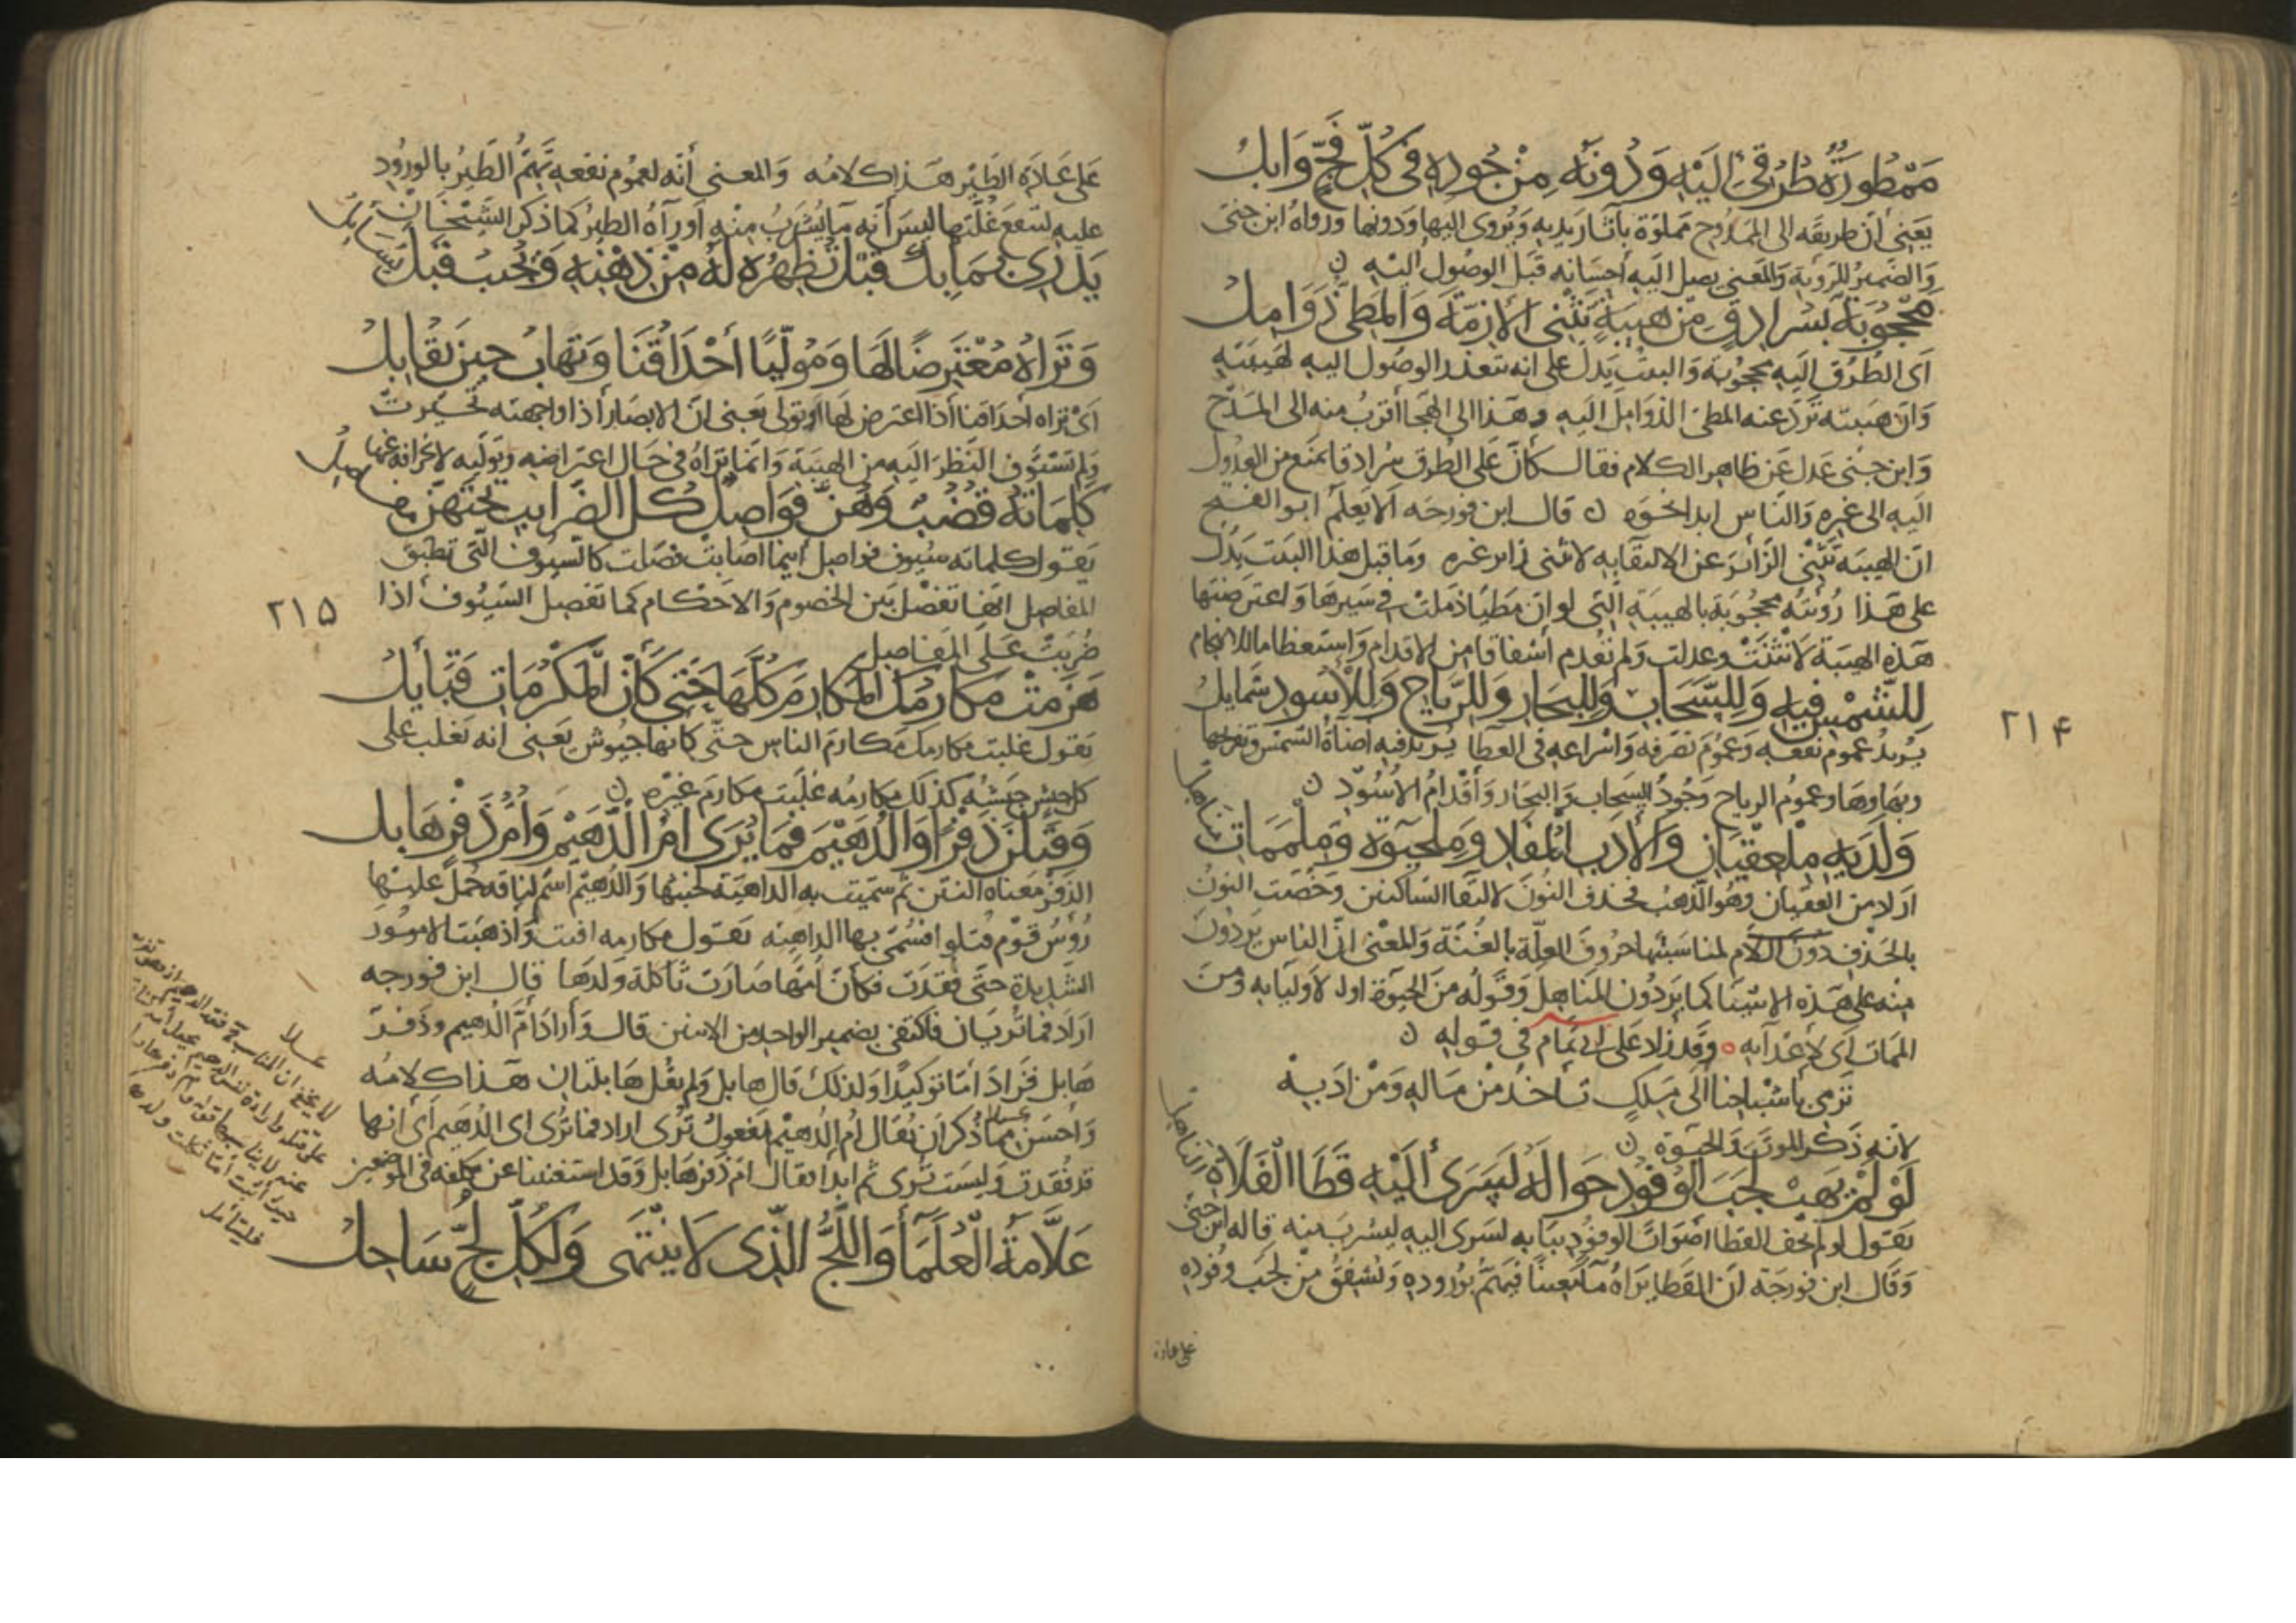 مَمْطُورَةٌ طُرُقِي إِلَيْهِ وَدُونَهُ مِنْ جُودِهِ فِي كُلِّ فَجٍّ وَابِلُ
يعنى أن طريقه الى الممدوح مملوّة بآثار يديه ويروى اليها ودونها ورواه ابن جنى
والضمير للرؤية والمعنى يصل اليه احسانه قبل الوصول اليه ن
مَحْجُوبَةٌ بِسُرَادِقٍ مِنْ هَيْبَةٍ تَثْنِي الأَزِمَّةَ وَالمَطِيُّ ذَوَامِلُ
اى الطرق اليه محجوبة والبيت يدل على انه تتعذر الوصول اليه لهيبته
وان هيبته تردّ عنه المطى الذوامل اليه وهذا الى الهجا أقرب منه الى المدح
وابن جنى عدل عن ظاهر الكلام فقال كأن على الطرق سرادقا يمنع من العدول
اليه الى غيره والناس ابدا نحوه ن قال ابن فورجه الا يعلم ابو الفتح
ان الهيبة تثنى الزائر عن الالتقا به لا تثنى زاير غيره وما قبل هذا البيت يدل
على هذا رؤيته محجوبة بالهيبة التى لو ان مطيا ذملت فى سيرها واعترضتها
هذه الهيبة لانثنت وعدلت ولم تقدم اشفاقا من الاقدام واستعظاما للاقتحام
لِلشَّمْسِ فِيهِ وَلِلسَّحَابِ وَلِلبِحَارِ وَلِلرِّيَاحِ وَلِلأُسُودِ شَمَايِلُ
يريد عموم نفعه وعموم تصرفه واسراعه فى العطا يريد فيه اضاءة الشمس ونفعها
وبهاوها وعموم الرياح وجود السحاب والبحار واقدام الأسود ن
وَلَدَيْهِ مِلْعِقْيَانِ وَالأَدَبِ المُفَادِ وَمِلْحَيٰوةِ وَمِلْمَمَاتِ مَنَاهِلُ
اراد من العقيان وهو الذهب فحذف النون لالتقا الساكنين وخصت النون
بالحذف دون اللام لمناسبتها حروف العلّة بالغنّة والمعنى ان الناس يردون
منه على هذه الاشيا كما يردون المناهل وقوله من الحيوة اولا لاوليايه ومن
الممات اى لاعدآيه ه وقد زاد على ابى تمام فى قوله ن
نَرْمِى بأشباحنا الى مَلِكٍ نأخذ من ماله ومن ادَبِهْ
لانه ذكر الموت والحيوة ن
لَوْ لَمْ يَهَبْ لَجَبَ الوُفُودِ حَوَالَهُ لَسَرَى إِلَيْهِ قَطَا الفَلَاةِ النَاهِلُ
يقول لو لم يخف القطا اصوات الوفود ببابه لسرى اليه ليشرب منه قاله ابن جنى
وقال ابن فورجة ان القطا يراه مآ معينا فيهمّ بوروده ويشفق من لجب وفوده
على عادة
٢١۴
على عادة الطير هذا كلامه والمعنى أنه لعموم نفعه تهمّ الطير بالورود
عليه لتنقع غلّتها ليس أنه مآ يشرب منه او رآه الطير كما ذكر الشيخان
يَدْرِي بِمَا بِكَ قَبْلَ تُظْهِرُهُ لَهُ مِنْ ذِهْنِهِ وَيُجِيبُ قَبْلَ تُسَايِلُ
وَتَرَاهُ مُعْتَرِضًا لَهَا وَمُوَلِّيًا أَحْدَاقُنَا وَتَهَابُ حِينَ يُقَابِلُ
اى تراه احداقنا اذا اعترض لها او تولى يعنى ان الابصار اذا واجهته تحيرت
ولم تستوف النظر اليه من الهيبة وانما تراه فى حال اعتراضه وتوليه لانحرافه عنها
كَلِمَاتُهُ قُضُبٌ وَهُنَّ فَوَاصِلٌ كُلُّ الضَرَايِبِ تَحْتَهُنَّ مَفَاصِلُ
يقول كلماته سيوف فواصل اينما اصابت فصلت كالسيوف التى تطبق
المفاصل انها تفصل بين الخصوم والاحكام كما تفصل السيوف اذا
ضربت على المفاصل
هَزَمَتْ مَكَارِمُكَ المَكَارِمَ كُلَّهَا حَتَّى كَأَنَّ المَكْرُمَاتِ قَبَايِلُ
يقول غلبت مكارمك مكارم الناس حتى كانها جيوش يعنى انه تغلب على
كل جيش جيشه كذلك مكارمه غلبت مكارم غيره ن
وَقَتَلْنَ دَفْرًا وَالدُّهَيْمَ فَمَا يُرَى أُمُّ الدُّهَيْمِ وَأُمُّ دَفْرٍ هَابِلُ
الدفر معناه النتن ثم سميت به الداهية لخبثها والدهيم اسم لناقة حمل عليها
رؤس قوم قتلوا فسمّى بها الداهيه يقول مكارمه افنت واذهبت الامور
الشديدة حتى فقدت فكأن امّها صارت ثاكلة ولدها قال ابن فورجه
اراد فما تريان فاكتفى بضمير الواحد من الاثنين قال واراد أمّ الدهيم ودفر
هابل فزاد أمّا توكيدا ولذلك قال هابل ولم يقل هابلتان هذا كلامه
واحسن مما ذكر ان يقال ام الدهيم مفعول ترى اراد فما ترى ام الدهيم اى انها
قد فقدت وليست ترى ثم ابدا فقال ام دفر هابل وقد استغنينا عن تكلفه فى الموضعين
عَلَّامَةُ العُلَمَآءِ وَاللُّجُّ الَّذِى لَا يَنْتَهِى وَلِكُلِّ لُجٍّ سَاحِلُ
٢١۵
فليتأمل